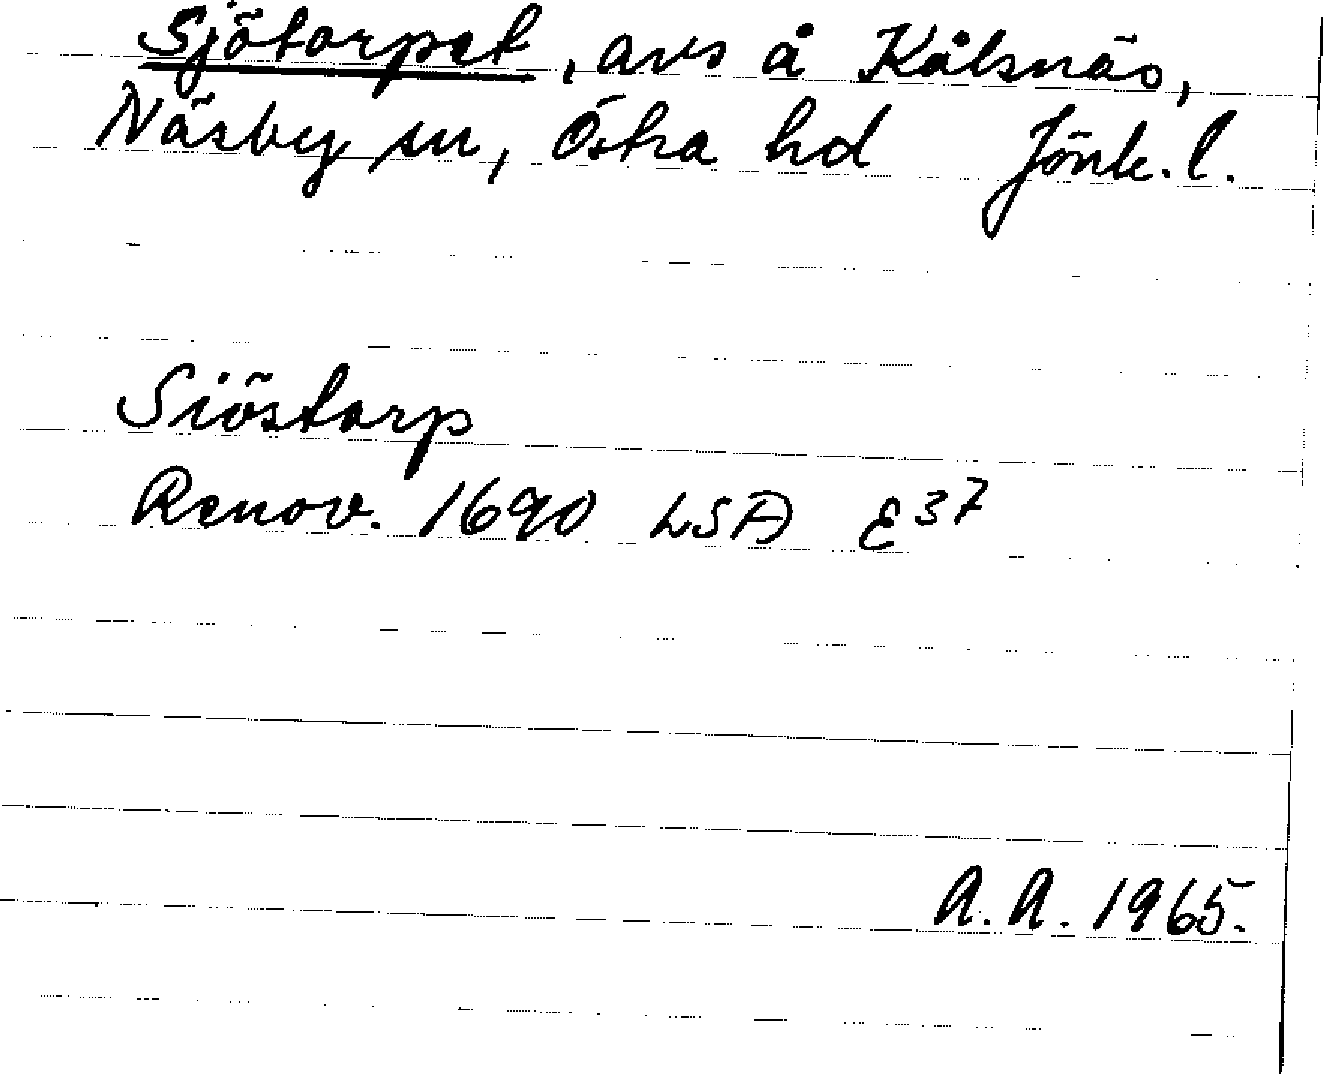 Sjötorpet, avs å Kålsnäs,
Näsby sn, Östra hd Jönk. l.
Siöstorp
Renov. 1690 LSA E37
A.A. 1965.